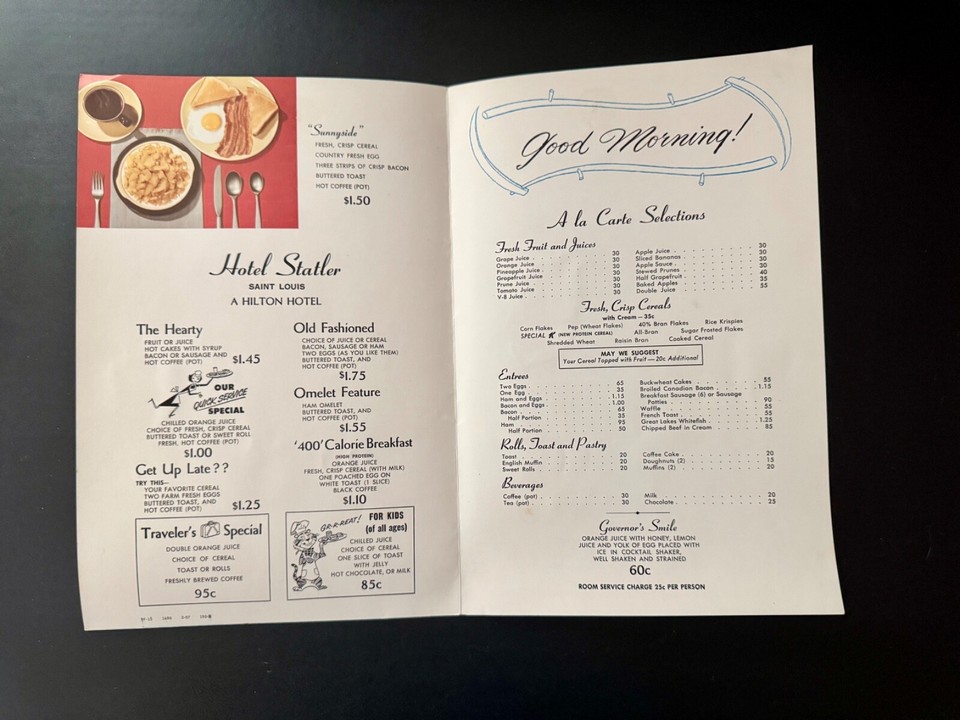 "Sunnyside"
FRESH, CRISP CEREAL
COUNTRY FRESH EGG
THREE STRIPS OF CRISP BACON
BUTTERED TOAST
HOT COFFEE (POT)
$1.50
Hotel Statler
SAINT LOUIS
A HILTON HOTEL
The Hearty
FRUIT OR JUICE
HOT CAKES WITH SYRUP
BACON OR SAUSAGE AND
HOT COFFEE (POT) $1.45
OUR
QUICK SERVICE
SPECIAL
CHILLED ORANGE JUICE
CHOICE OF FRESH, CRISP CEREAL
BUTTERED TOAST OR SWEET ROLL
FRESH, HOT COFFEE (POT)
$1.00
Get Up Late??
TRY THIS—
YOUR FAVORITE CEREAL
TWO FARM FRESH EGGS
BUTTERED TOAST, AND
HOT COFFEE (POT) $1.25
Traveler's Special
DOUBLE ORANGE JUICE
CHOICE OF CEREAL
TOAST OR ROLLS
FRESHLY BREWED COFFEE
95c
Old Fashioned
CHOICE OF JUICE OR CEREAL
BACON, SAUSAGE OR HAM
TWO EGGS (AS YOU LIKE THEM)
BUTTERED TOAST, AND
HOT COFFEE (POT)
$1.75
Omelet Feature
HAM OMELET
BUTTERED TOAST, AND
HOT COFFEE (POT)
$1.55
'400' Calorie Breakfast
(HIGH PROTEIN)
ORANGE JUICE
FRESH, CRISP CEREAL (WITH MILK)
ONE POACHED EGG ON
WHITE TOAST (1 SLICE)
BLACK COFFEE
$1.10
GR-R-REAT!
FOR KIDS
(of all ages)
CHILLED JUICE
CHOICE OF CEREAL
ONE SLICE OF TOAST
WITH JELLY
HOT CHOCOLATE, OR MILK
85c
Good Morning!
A la Carte Selections
Fresh Fruit and Juices
Grape Juice 30
Orange Juice 30
Pineapple Juice 30
Grapefruit Juice 30
Prune Juice 30
Tomato Juice 30
V-8 Juice 30
Apple Juice 30
Sliced Bananas 30
Apple Sauce 30
Stewed Prunes 40
Half Grapefruit 35
Baked Apples 55
Double Juice
Fresh, Crisp Cereals
with Cream — 35c
Corn Flakes Pep (Wheat Flakes) 40% Bran Flakes Rice Krispies
SPECIAL K (NEW PROTEIN CEREAL) All-Bran Sugar Frosted Flakes
Shredded Wheat Raisin Bran Cooked Cereal
MAY WE SUGGEST
Your Cereal Topped with Fruit — 20c Additional
Entrees
Two Eggs 65
One Egg 35
Ham and Eggs 1.15
Bacon and Eggs 1.00
Bacon 65
Half Portion 35
Ham 95
Half Portion 50
Buckwheat Cakes 55
Broiled Canadian Bacon 1.15
Breakfast Sausage (6) or Sausage
Patties 90
Waffle 55
French Toast 55
Great Lakes Whitefish 1.25
Chipped Beef in Cream 85
Rolls, Toast and Pastry
Toast 20
English Muffin 20
Sweet Rolls 20
Coffee Cake 20
Doughnuts (2) 15
Muffins (2) 20
Beverages
Coffee (pot) 30
Tea (pot) 30
Milk 20
Chocolate 25
Governor's Smile
ORANGE JUICE WITH HONEY, LEMON
JUICE AND YOLK OF EGG PLACED WITH
ICE IN COCKTAIL SHAKER,
WELL SHAKEN AND STRAINED
60c
ROOM SERVICE CHARGE 25c PER PERSON